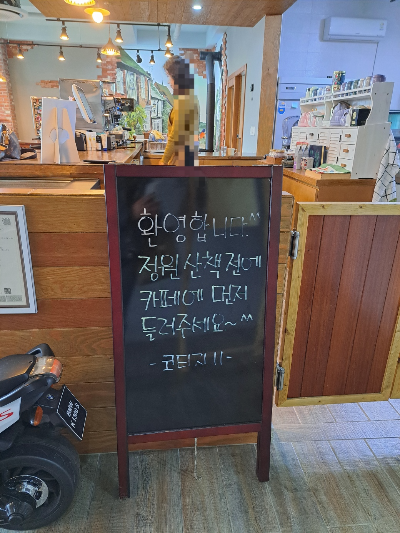 환영합니다^^
정원 산책 전에
카페에 먼저
들러주세요~^^
-코티지11-